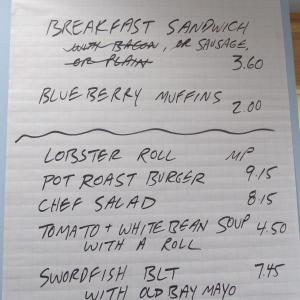 BREAKFAST SANDWICH
WITH BACON, OR SAUSAGE,
OR PLAIN 3.60
BLUEBERRY MUFFINS 2.00
LOBSTER ROLL MP
POT ROAST BURGER 9.15
CHEF SALAD 8.15
TOMATO + WHITE BEAN SOUP 4.50
WITH A ROLL
SWORDFISH BLT 7.45
WITH OLD BAY MAYO